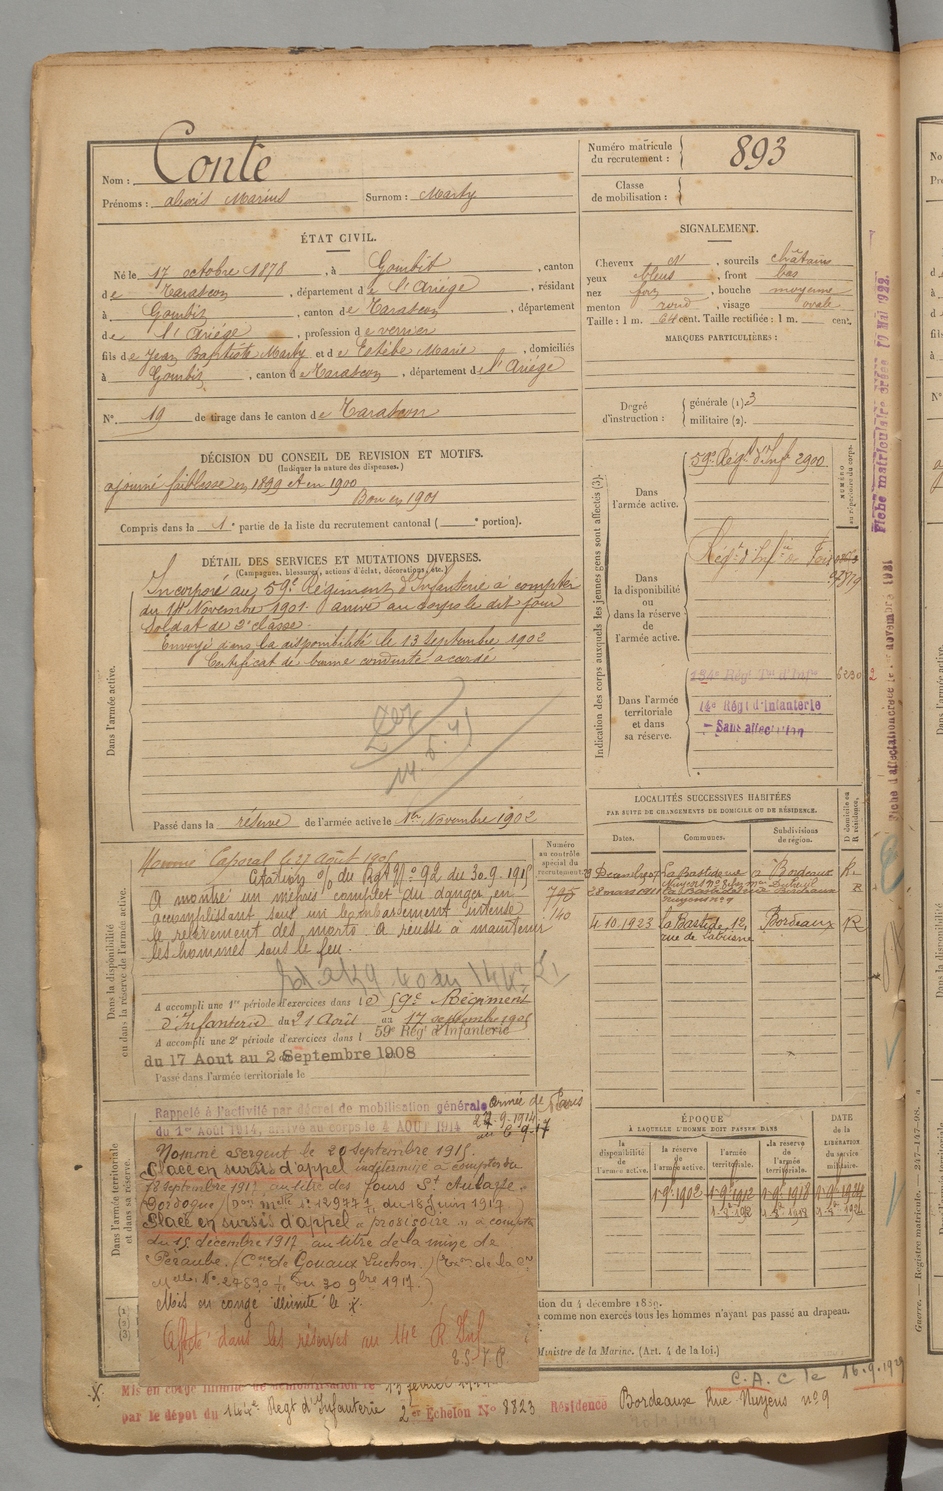 Nom : Conte
Prénoms : alexis Marius Surnom : Marty
Numéro matricule du recrutement : 893
Classe de mobilisation :
ÉTAT CIVIL.
Né le 17 octobre 1878, à Gourbit, canton
de Tarascon, département de l'Ariège, résidant
à Gourbit, canton de Tarascon, département
de l'Ariège, profession de verrier
fils de Jean Baptiste Marty et de Estèbe Marie, domiciliés
à Gourbit, canton de Tarascon, département de l'Ariège
N° 19 de tirage dans le canton de Tarascon
SIGNALEMENT.
Cheveux N, sourcils châtains
yeux bleus, front bas
nez fort, bouche moyenne
menton rond, visage ovale
Taille : 1 m. 64 cent. Taille rectifiée : 1 m. cent.
MARQUES PARTICULIÈRES :
Degré d'instruction : générale (1). 3
militaire (2).
DÉCISION DU CONSEIL DE REVISION ET MOTIFS.
(Indiquer la nature des dispenses.)
ajourné faiblesse en 1899 et en 1900
Bon en 1901
Compris dans la 1e partie de la liste du recrutement cantonal ( e portion).
DÉTAIL DES SERVICES ET MUTATIONS DIVERSES.
(Campagnes, blessures, actions d'éclat, décorations, etc.)
Dans l'armée active.
Incorporé au 59e Régiment d'Infanterie à compter
du 14 Novembre 1901. arrivé au corps le dit jour
soldat de 2e classe.
Envoyé dans la disponibilité le 13 Septembre 1902
Certificat de bonne conduite accordé
Passé dans la réserve de l'armée active le 1er Novembre 1902
Indication des corps auxquels les jeunes gens sont affectés (3).
NUMÉRO au répertoire du corps.
Dans l'armée active.
59e Régt d'Inf 2900
Dans la disponibilité ou dans la réserve de l'armée active.
Régt d'Infie de Foix
Dans l'armée territoriale et dans sa réserve.
134e Régt Ter d'Infie 6230
14e Régt d'Infanterie
Sans affectation
Fiche matriculaire créée 17 Mai 1922.
Fiche d'affectation créée le 1er novembre 1921
LOCALITÉS SUCCESSIVES HABITÉES
PAR SUITE DE CHANGEMENTS DE DOMICILE OU DE RÉSIDENCE.
Dates. Communes. Subdivisions de région. D domicile ou R résidence.
La Bastide Bordeaux R.
4.10.1923 La Bastide, 12, Bordeaux R
Dans la disponibilité ou dans la réserve de l'armée active.
Numéro au contrôle spécial du recrutement
Nommé Caporal le 27 Août 1905
Citation o/ du Rgt No 92 du 30.9.1915
A montré un mépris complet du danger en
accomplissant sous un bombardement intense
le relèvement des morts. A réussi à maintenir
les hommes sous le feu.
795
140
A accompli une 1re période d'exercices dans le 59e Régiment
d'Infanterie du 21 Août au 17 septembre 1905
A accompli une 2e période d'exercices dans l 59e Régt d'Infanterie
du 17 Aout au 2 Septembre 1908
Passé dans l'armée territoriale le
Dans l'armée territoriale et dans sa réserve.
Rappelé à l'activité par décret de mobilisation générale
du 1er Août 1914, arrivé au corps le 4 AOUT 1914
Nommé Sergent le 20 septembre 1915.
Placé en sursis d'appel indéterminé à compter du
18 septembre 1917, au titre des Fours St Aulaye
Dordogne
Placé en sursis d'appel "provisoire" à compter
du 15 décembre 1917 au titre de la mine de
Péraube. (Cne de Gouaux Luchon.)
No 27890 du 30 9bre 1917.)
Mis en congé illimité le X.
Affecté dans les réserves au 14e R. Inf
ÉPOQUE
À LAQUELLE L'HOMME DOIT PASSER DANS
la disponibilité de l'armée active. la réserve de l'armée active. l'armée territoriale. la réserve de l'armée territoriale.
DATE de la LIBÉRATION du service militaire.
1-9-1902 1-9-1912 1-9-1918 1-9-1924
tion du 4 décembre 1889.
comme non exercés tous les hommes n'ayant pas passé au drapeau.
Ministre de la Marine. (Art. 4 de la loi.)
C.A.C le 16.9.1929
X. Mis en congé illimité de démobilisation le 13 février
par le dépôt du 144e Régt d'Infanterie 2e Echelon No 8823 Résidence Bordeaux Rue Nuyens no 9
Guerre. — Registre matricule. 247-147-98.